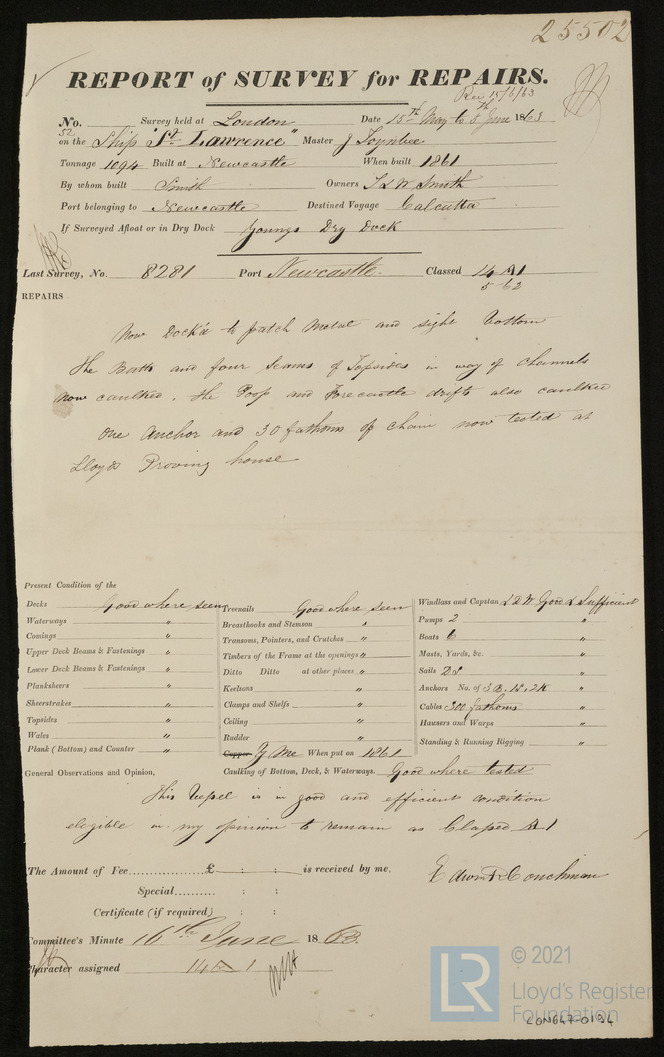 25502
REPORT of SURVEY for REPAIRS.
Rec 15/6/63
No. 52 Survey held at London Date 15th May to 5th June 1863
on the Ship "St Lawrence" Master J Toynbee
Tonnage 1094 Built at Newcastle When built 1861
By whom built Smith Owners T & W Smith
Port belonging to Newcastle Destined Voyage Calcutta
If Surveyed Afloat or in Dry Dock Youngs Dry Dock
Last Survey, No. 8281 Port Newcastle. Classed 14 A1
5 62
REPAIRS
Now Dock'd to patch Metal and sight bottom
The Butts and four Seams of Topsides in way of Channels
now caulked, the Poop and Forecastle drifts also caulked
One Anchor and 30 fathoms of chain now tested at
Lloyds Proving house
Present Condition of the
Decks Good where seen
Waterways "
Comings "
Upper Deck Beams & Fastenings "
Lower Deck Beams & Fastenings "
Planksheers "
Sheerstrakes "
Topsides "
Wales "
Plank (Bottom) and Counter "
Treenails Good where seen
Breasthooks and Stemson "
Transoms, Pointers, and Crutches "
Timbers of the Frame at the openings "
Ditto Ditto at other places "
Keelsons "
Clamps and Shelfs "
Ceiling "
Rudder "
Copper Y Me When put on 1861
Caulking of Bottom, Deck, & Waterways. Good where tested
Windlass and Capstan Good & Sufficient
Pumps 2 "
Boats 6 "
Masts, Yards, &c. "
Sails "
Anchors No. of 3 B. 1S. 2K "
Cables 300 fathoms "
Hausers and Warps "
Standing & Running Rigging "
General Observations and Opinion,
This Vessel is in good and efficient condition
eligible in my opinion to remain as Classed A1
The Amount of Fee £ : : is received by me,
Edwin Couchman
Special : :
Certificate (if required) : :
Committee's Minute 16th June 1863.
Character assigned 14 A 1
LR
© 2021
Lloyd's Register
Foundation
LON647-0194